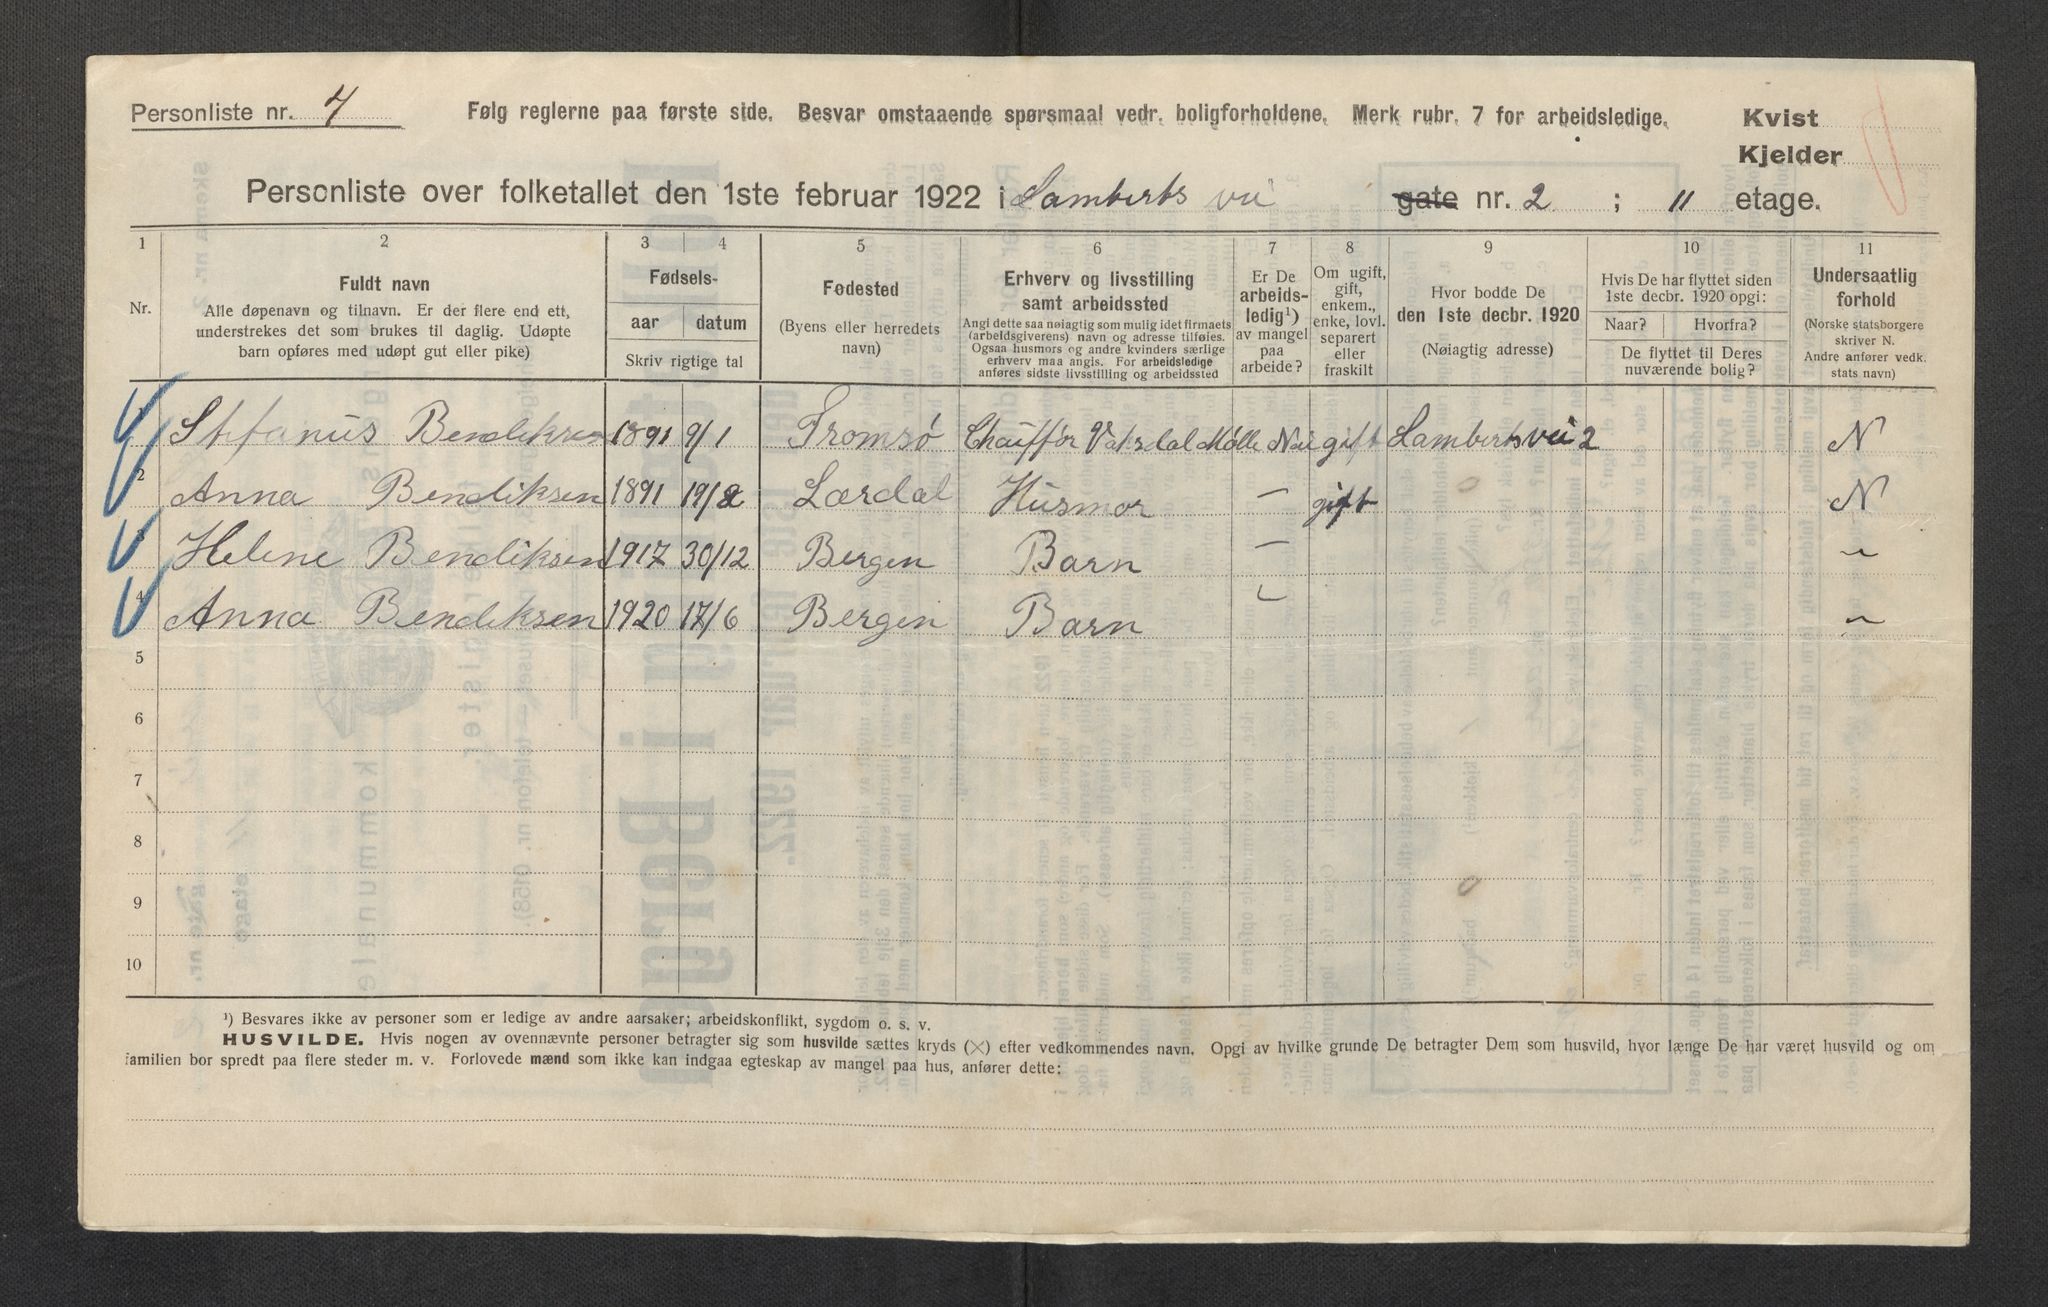 Personliste nr. 7 Følg reglerne paa første side. Besvar omstaaende spørsmaal vedr. boligforholdene. Merk rubr. 7 for arbeidsledige. Kvist
Kjelder
Personliste over folketallet den 1ste februar 1922 i Lamberts vei gate nr. 2 ; 11 etage.
1 2 3 4 5 6 7 8 9 10 11
Nr.
Fuldt navn
Alle døpenavn og tilnavn. Er der flere end ett,
understrekes det som brukes til daglig. Udøpte
barn opføres med udøpt gut eller pike)
Fødsels-
aar datum
Skriv rigtige tal
Fødested
(Byens eller herredets
navn)
Erhverv og livsstilling
samt arbeidssted
Angi dette saa nøiagtig som mulig idet firmaets
(arbeidsgiverens) navn og adresse tilføies.
Ogsaa husmors og andre kvinders særlige
erhverv maa angis. For arbeidsledige
anføres sidste livsstilling og arbeidssted
Er De
arbeids-
ledig¹)
av mangel
paa
arbeide?
Om ugift,
gift,
enkem.,
enke, lovl.
separert
eller
fraskilt
Hvor bodde De
den 1ste decbr. 1920
(Nøiagtig adresse)
Hvis De har flyttet siden
1ste decbr. 1920 opgi:
Naar? Hvorfra?
De flyttet til Deres
nuværende bolig?
Undersaatlig
forhold
(Norske statsborgere
skriver N.
Andre anfører vedk.
stats navn)
1 Stefanus Bendiksen 1891 9/1 Tromsø Chauffør Vaksdal Mølle Nei gift Lamberts vei 2 N
2 Anna Bendiksen 1891 19/8 Lærdal Husmor — gift N
3 Helene Bendiksen 1917 30/12 Bergen Barn — "
4 Anna Bendiksen 1920 17/6 Bergen Barn — "
5
6
7
8
9
10
¹) Besvares ikke av personer som er ledige av andre aarsaker; arbeidskonflikt, sygdom o. s. v.
HUSVILDE. Hvis nogen av ovennævnte personer betragter sig som husvilde sættes kryds (×) efter vedkommendes navn. Opgi av hvilke grunde De betragter Dem som husvild, hvor længe De har været husvild og om
familien bor spredt paa flere steder m. v. Forlovede mænd som ikke kan indgaa egteskap av mangel paa hus, anfører dette: